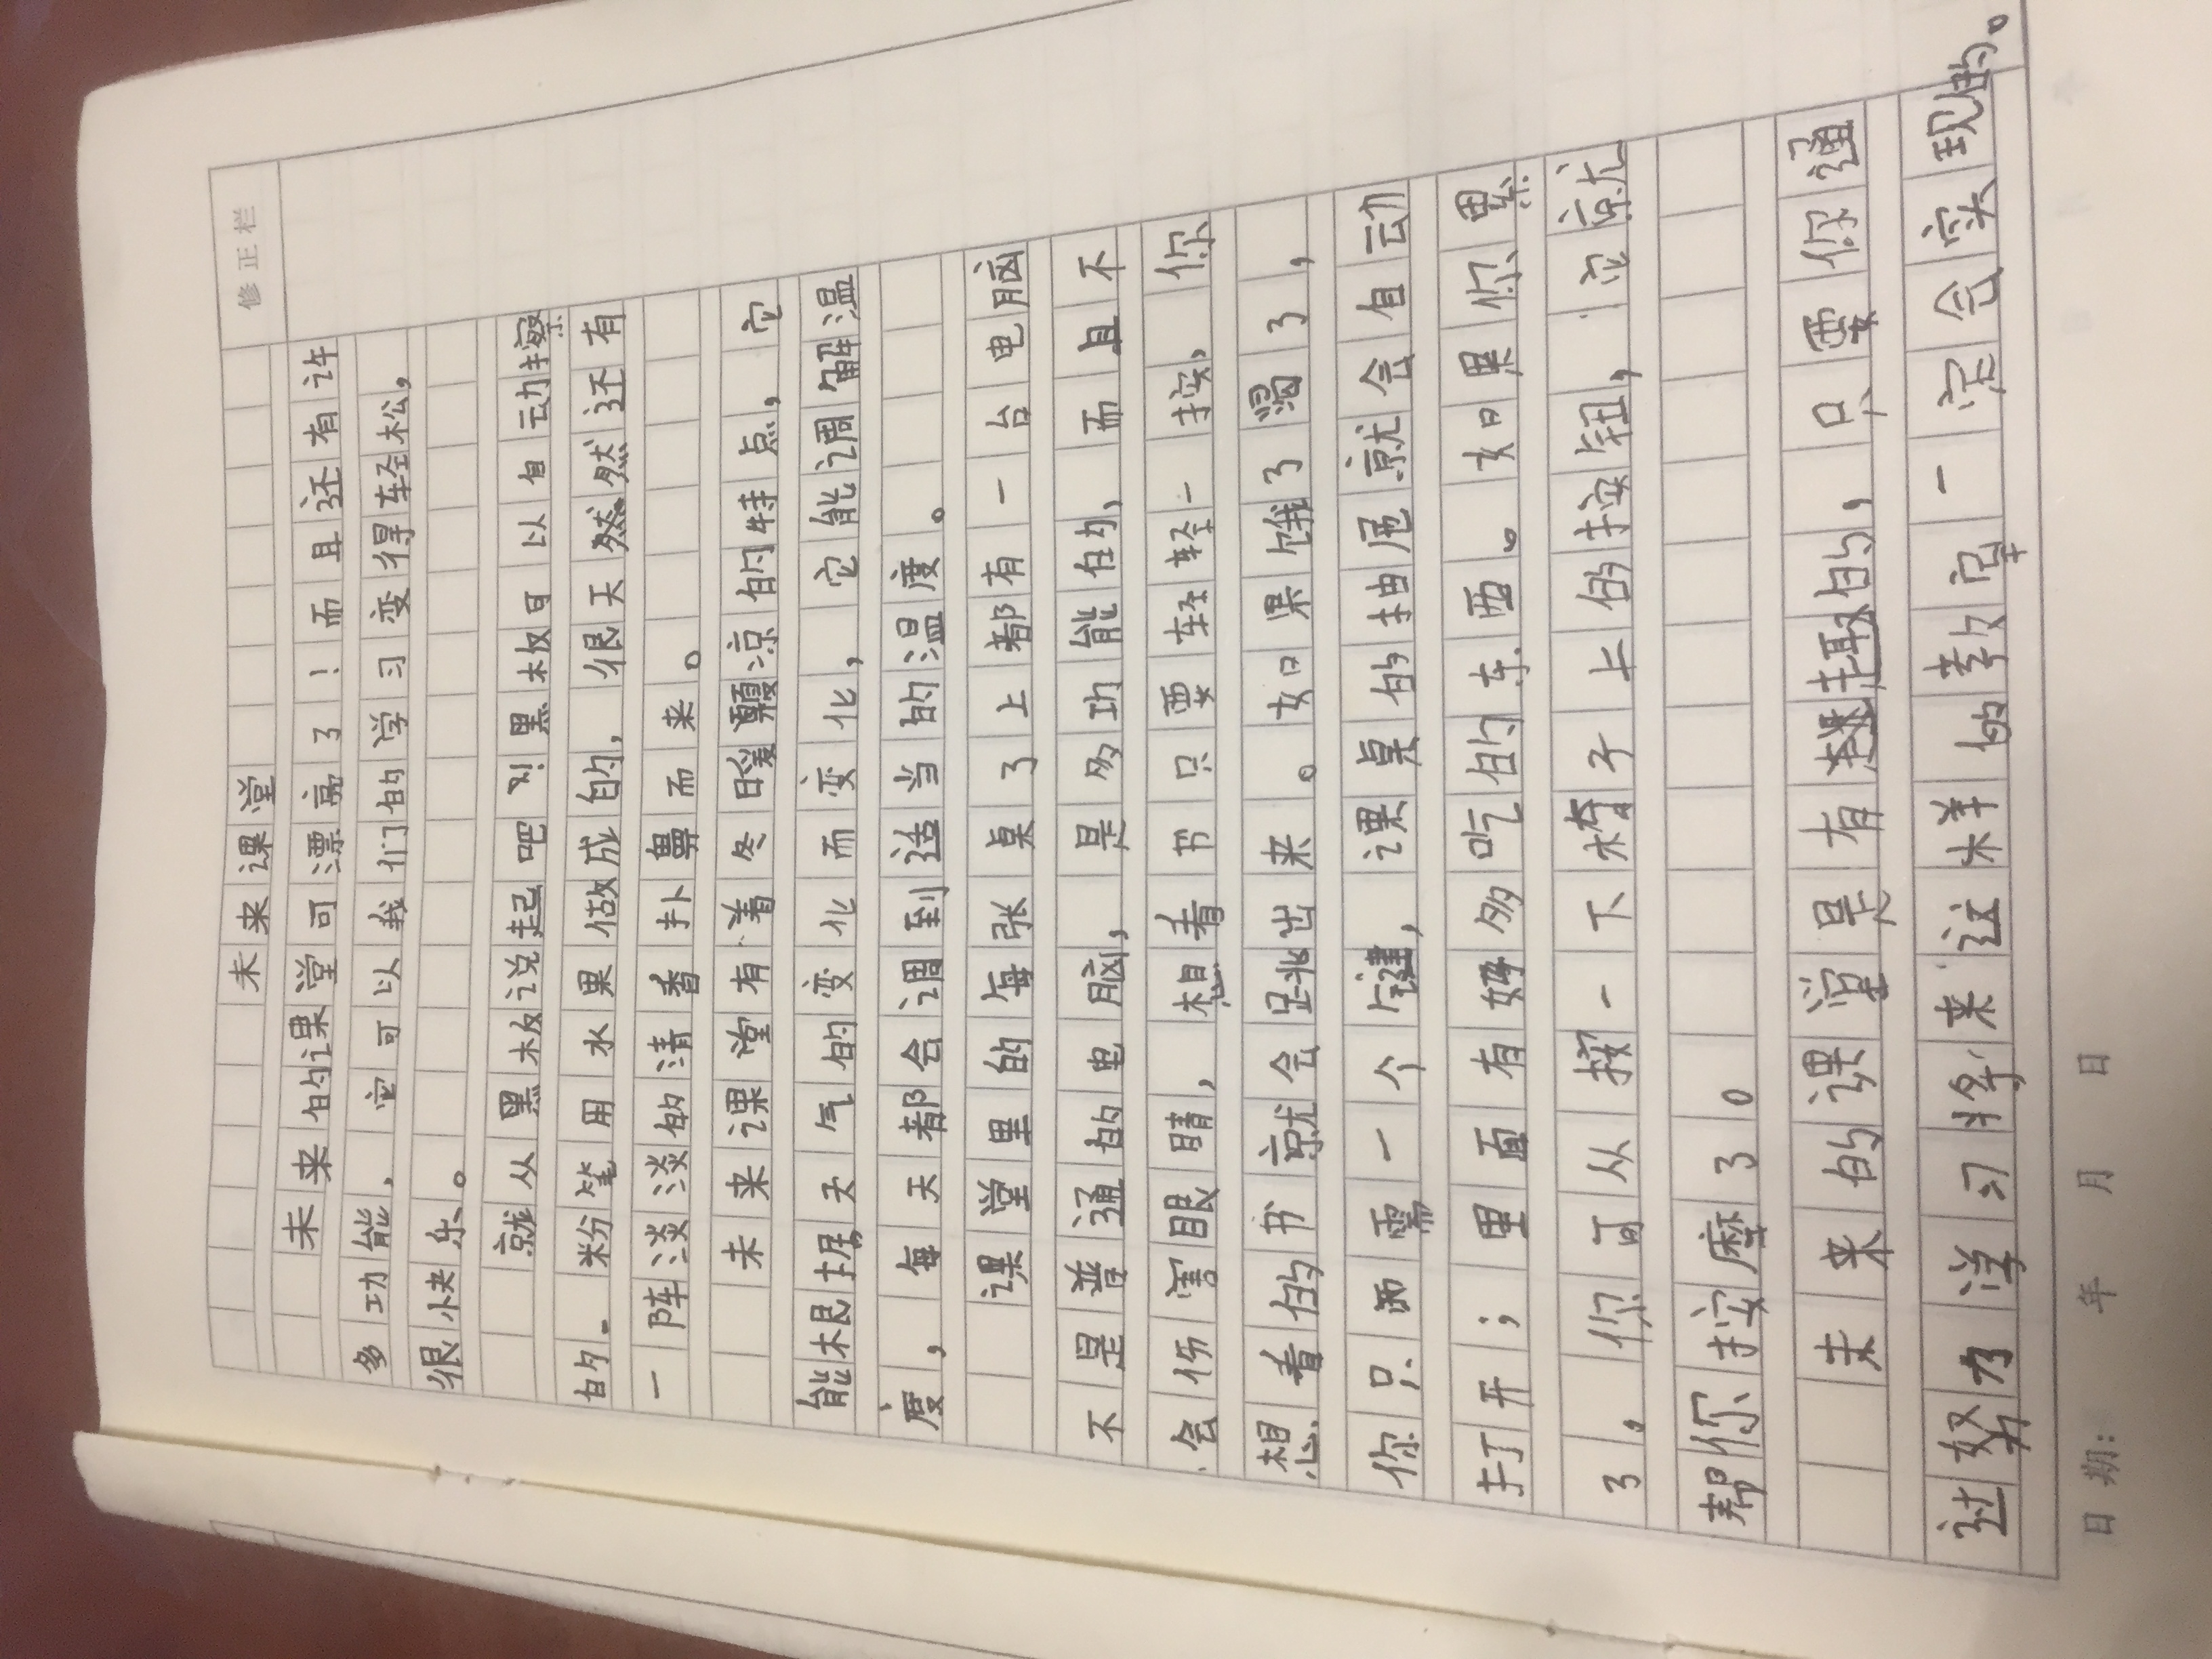 修正栏
未来课堂
未来的课堂可漂亮了！而且还有许
多功能，它可以我们的学习变得轻松，
很快乐。
就从黑板说起吧！黑板可以自动擦
的。粉笔用水果做成的，很天然然还有
一阵淡淡的清香扑鼻而来。
未来课堂有着冬暖夏凉的特点，它
能根据天气的变化而变化，它能调解温
度，每天都会调到适当的温度。
课堂里的每张桌了上都有一台电脑
不是普通的电脑，是多功能的，而且不
会伤害眼睛，想看书只要轻轻一按，你
想看的书就会跳出来。如果饿了渴了，
你只需一个键，课桌的抽屉就会自动
打开；里面有好多吃的东西。如果你累
了，你可从按一下椅子上的按钮，它就
帮你按摩了。
未来的课堂是有趣的，只要你通
过努力学习将来这样的教室一定会实现的。
日期： 年 月 日